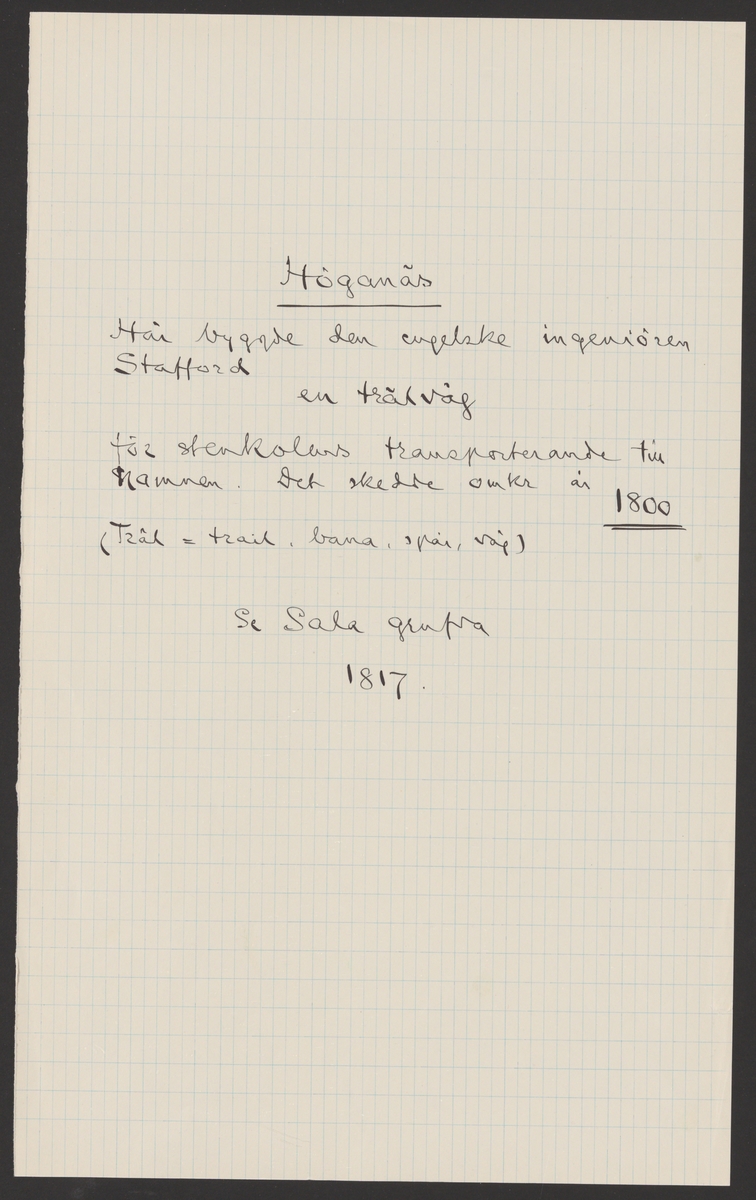 Höganäs
Här byggde den engelske ingeniören
Stafford
en trälväg
för stenkolens transporterande till
Hamnen. Det skedde omkr år
1800
(Träl = trail, bana, spår, väg)
Se Sala grufva
1817.